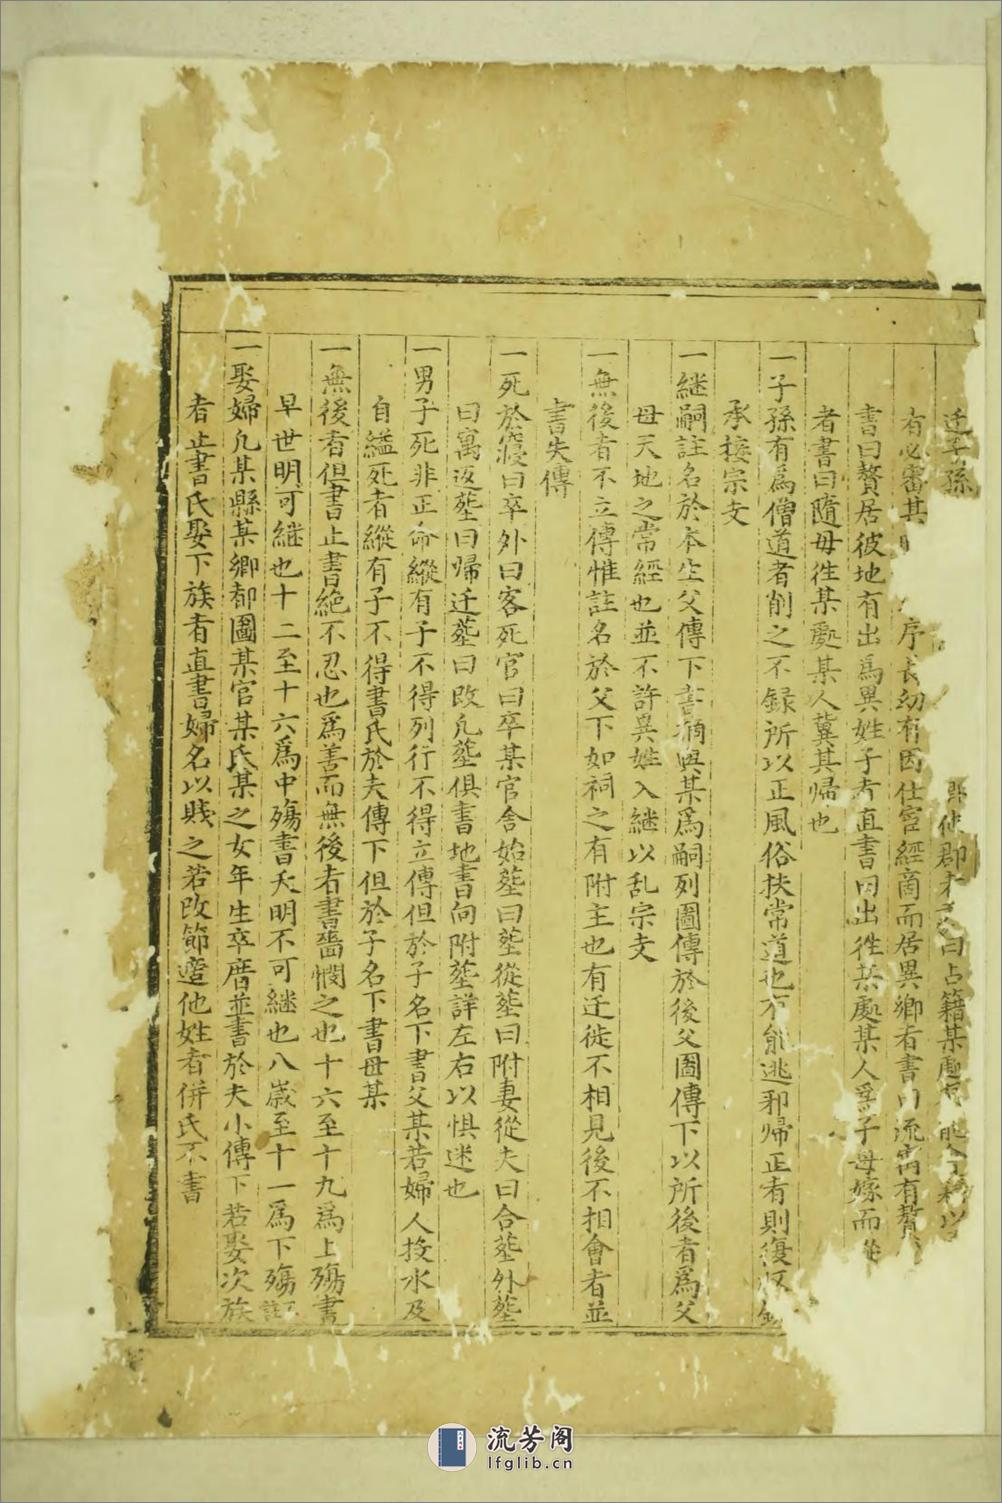 迁子孫 使郡 曰占籍某處
有 必審其 序長幼有因仕宦經商而居異鄉者書曰流寓有贅
書曰贅居彼地有出爲異姓子者直書曰出徃某處某人爲子母嫁而從
者書曰隨母徃某處某人冀其歸也
一子孫有爲僧道者削之不録所以正風俗扶常道也有能逃邪歸正者則復収錄
承接宗支
一継嗣註名於本生父傳下書爾與某爲嗣列圖傳於後父圖傳下以所後者爲父
母天地之常經也並不許異姓入継以乱宗支
一無後者不立傳惟註名於父下如祠之有附主也有迁徙不相見後不相會者並
書失傳
一死於寢曰卒外曰客死官曰卒某官舍始塟曰塟從塟曰附妻從夫曰合塟外塟
曰寓返塟曰歸迁塟曰改凢塟俱書地書向附塟詳左右以惧迷也
一男子死非正命縱有子不得列行不得立傳但於子名下書父某若婦人投水及
自縊死者縱有子不得書氏於夫傳下但於子名下書母某
一無後者但書止書絶不忍也爲善而無後者書嗇憫之也十六至十九爲上殤書
早世明可継也十二至十六爲中殤書夭明不可継也八嵗至十一爲下殤註
一娶婦凢某縣某鄉都圖某官某氏某之女年生卒暦並書於夫小傳下若娶次族
者止書氏娶下族者直書婦名以賤之若改節適他姓者併氏不書
流芳阁
lfglib.cn